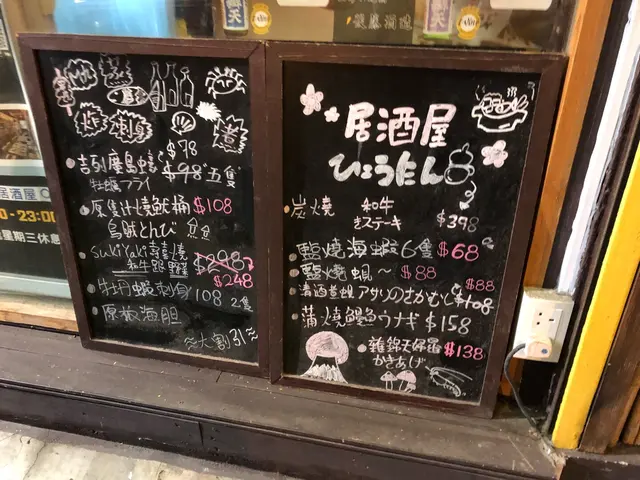 $78
吉列廣島蠔 $98 五隻
牡蠣フライ
原隻汁燒魷桶 $108
烏賊とんび
sukiyaki 壽喜燒 $298
和牛 $248
牡丹蝦刺身 108 2隻
原板海胆
≈大割引≈
居酒屋
ひょうたん
炭焼 和牛
きステーキ $398
鹽燒海蝦 6隻 $68
鹽燒蜆~ $88
清酒煮蜆 アサリのさかむし $108 $88
蒲燒鰻 ウナギ $158
雜錦天婦羅 $138
かきあげ
居酒屋
0-23:00
星期三休息